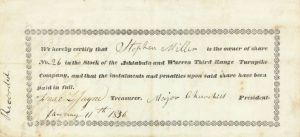 We hereby certify that Stephen Miller is the owner of share
No. 26 in the Stock of the Ashtabula and Warren Third Range Turnpike
Company, and that the instalments and penalties upon said share have been
paid in full.
Treasurer. Major Churchill President.
January 11th 1836
Recorded